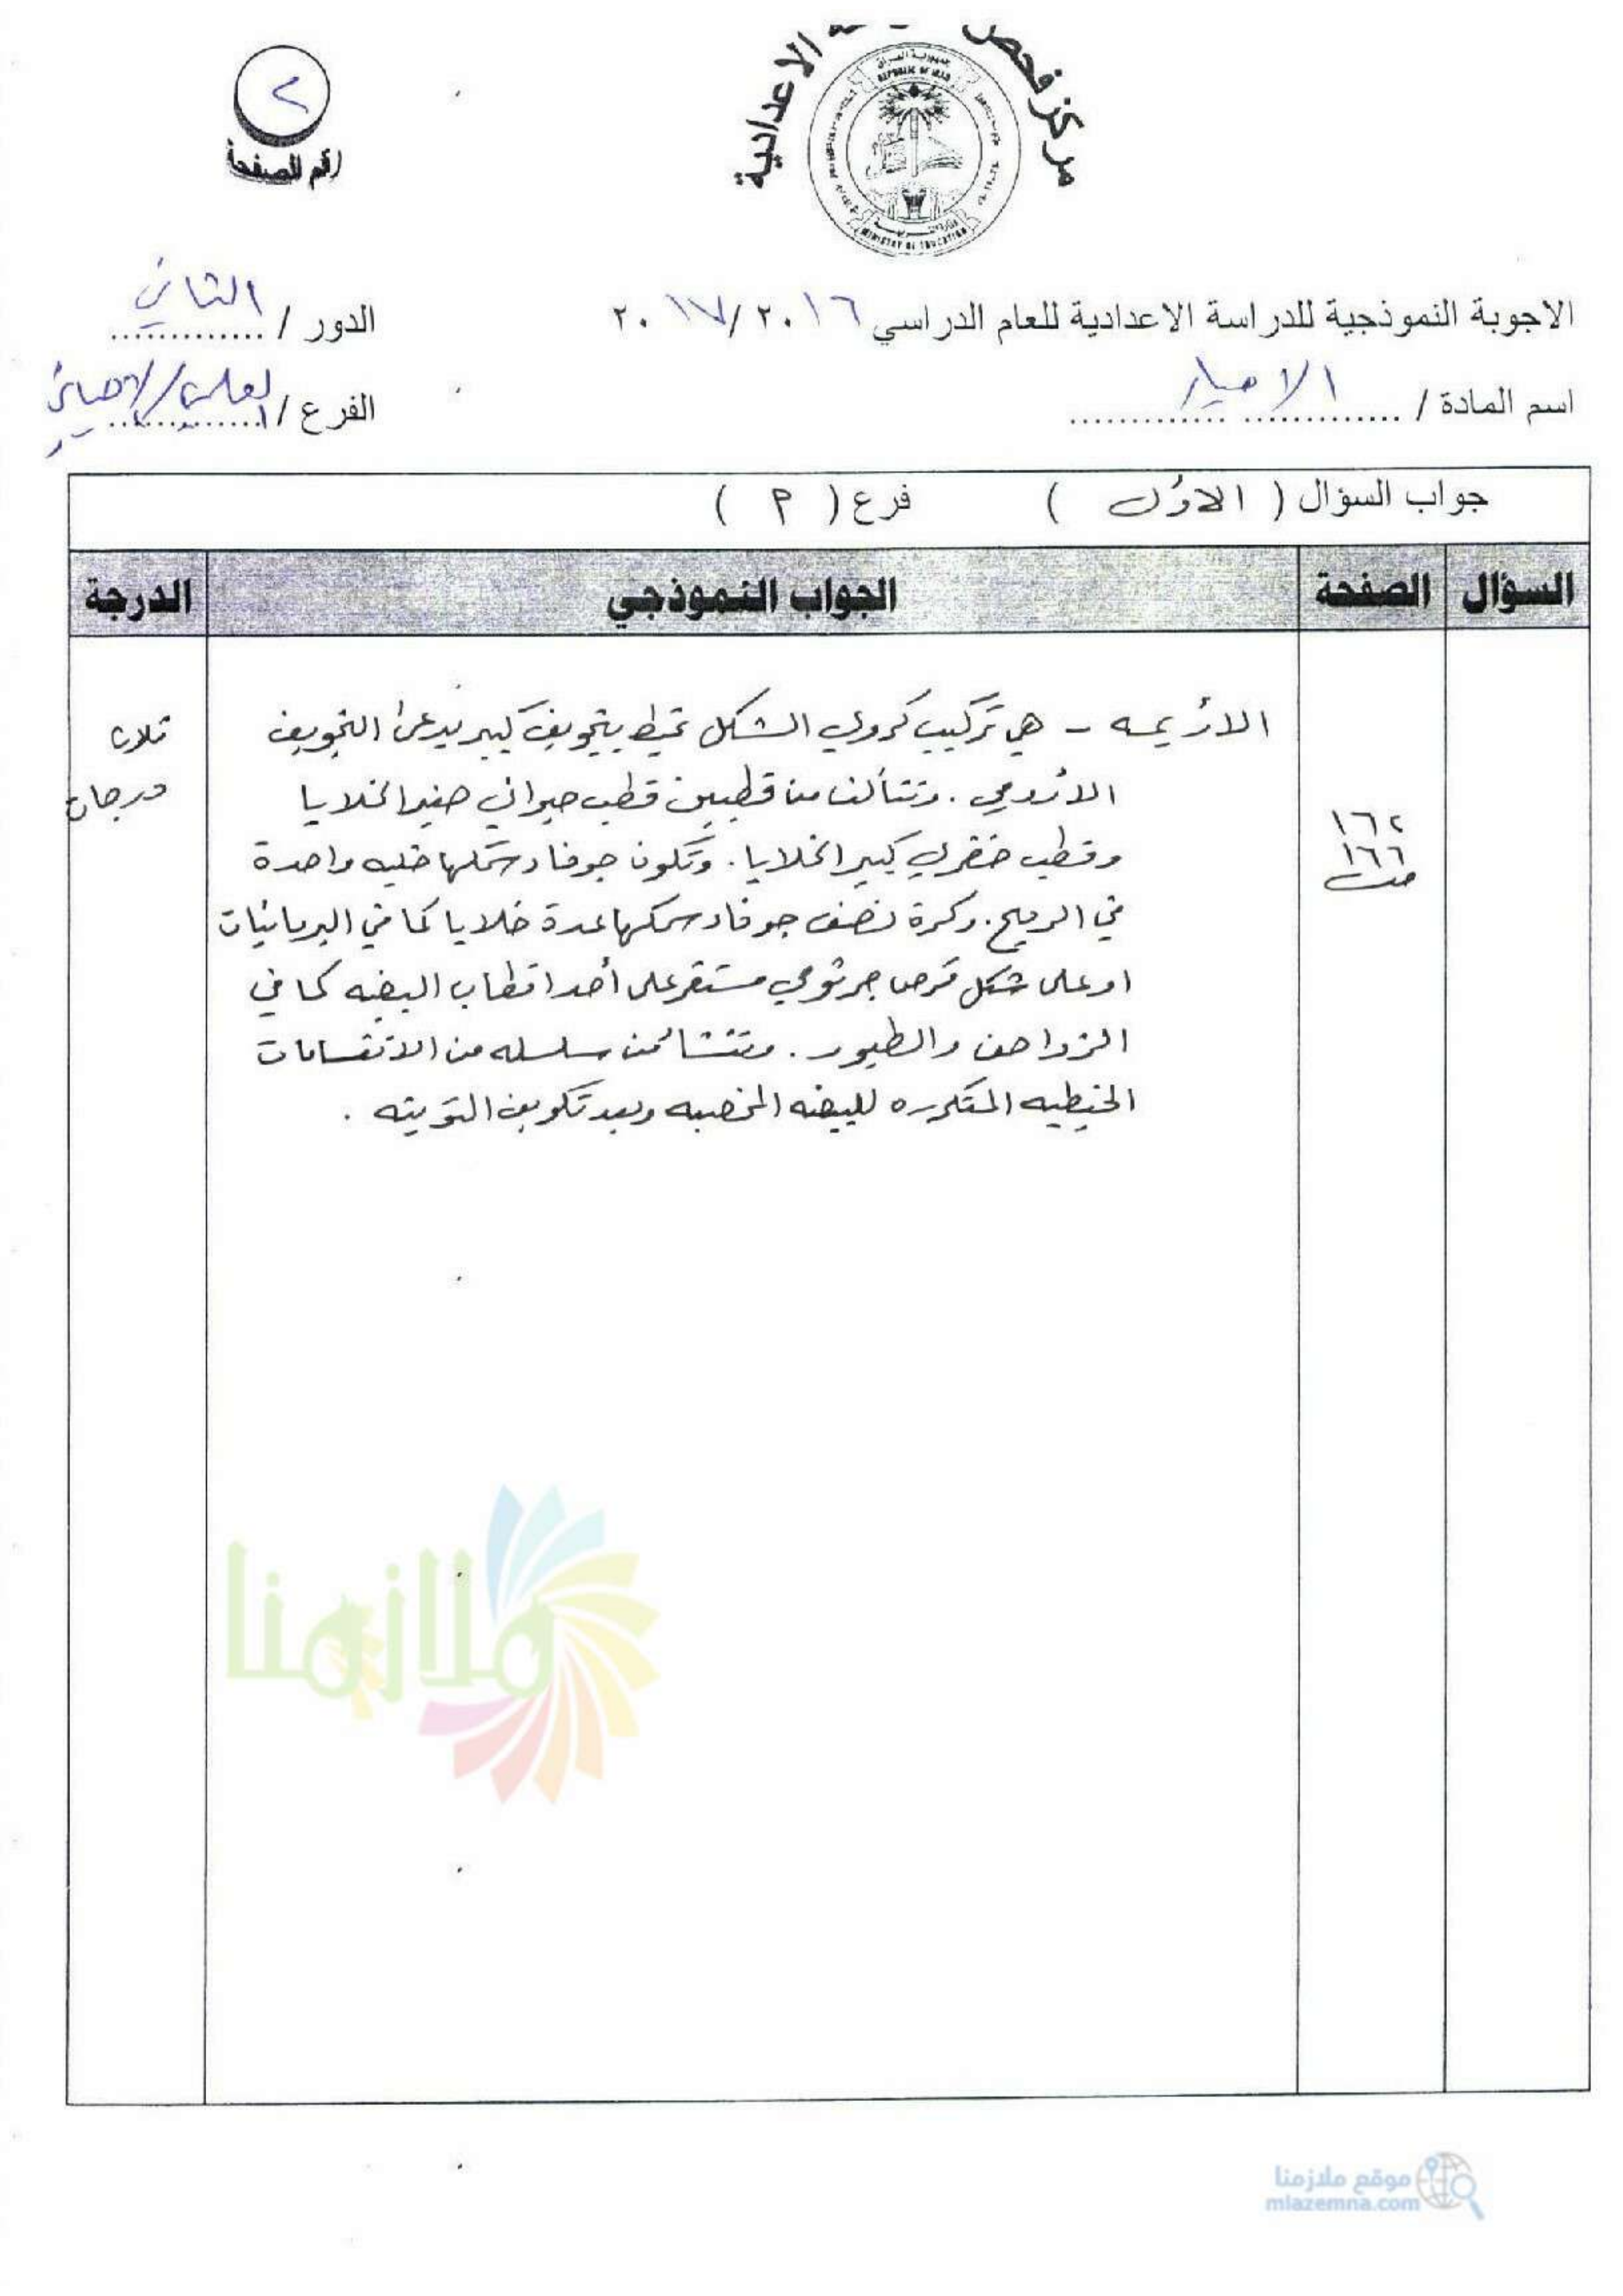 ٢
رقم الصفحة
مركز فحص الاعدادية
جمهورية العراق
REPUBLIC OF IRAQ
MINISTRY OF EDUCATION
الاجوبة النموذجية للدراسة الاعدادية للعام الدراسي ٢٠١٦/٢٠١٧
الدور / الثاني
اسم المادة / الاحياء
الفرع / العلمي/الاحيائي
جواب السؤال ( الاول ) فرع ( م )
السؤال الصفحة الجواب النموذجي الدرجة
الأريمه - هي تركيب كروي الشكل تحيط بتجويف كبير يدعى التجويف
الأرومي . وتتألف من قطبين قطب حيواني صغير الخلايا
وقطب خضري كبير الخلايا . وتكون جوفاء سمكها خليه واحدة
في الرميح . وكرة نصف جوفاء سمكها عدة خلايا كما في البرمائيات
او على شكل قرص جرثومي مستقر على أحد اقطاب البيضه كما في
الزواحف والطيور . وتنشأ من سلسله من الانقسامات
الخيطيه المتكرره للبيضه المخصبه وبعد تكوين التويته .
ثلاث
درجات
١٦٢
١٦٦
ملازمنا
موقع ملازمنا
mlazemna.com